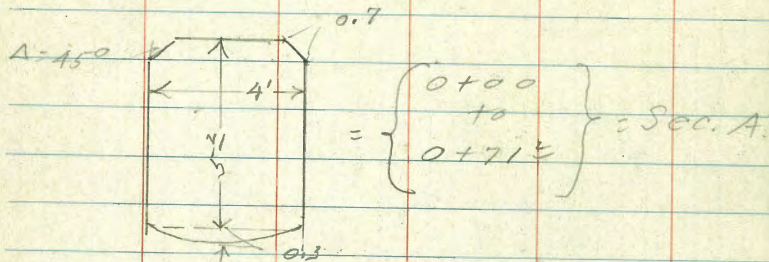 0.7
Δ=45°
4'
= { 0+00 to 0+71² } = Sec. A.
0.3